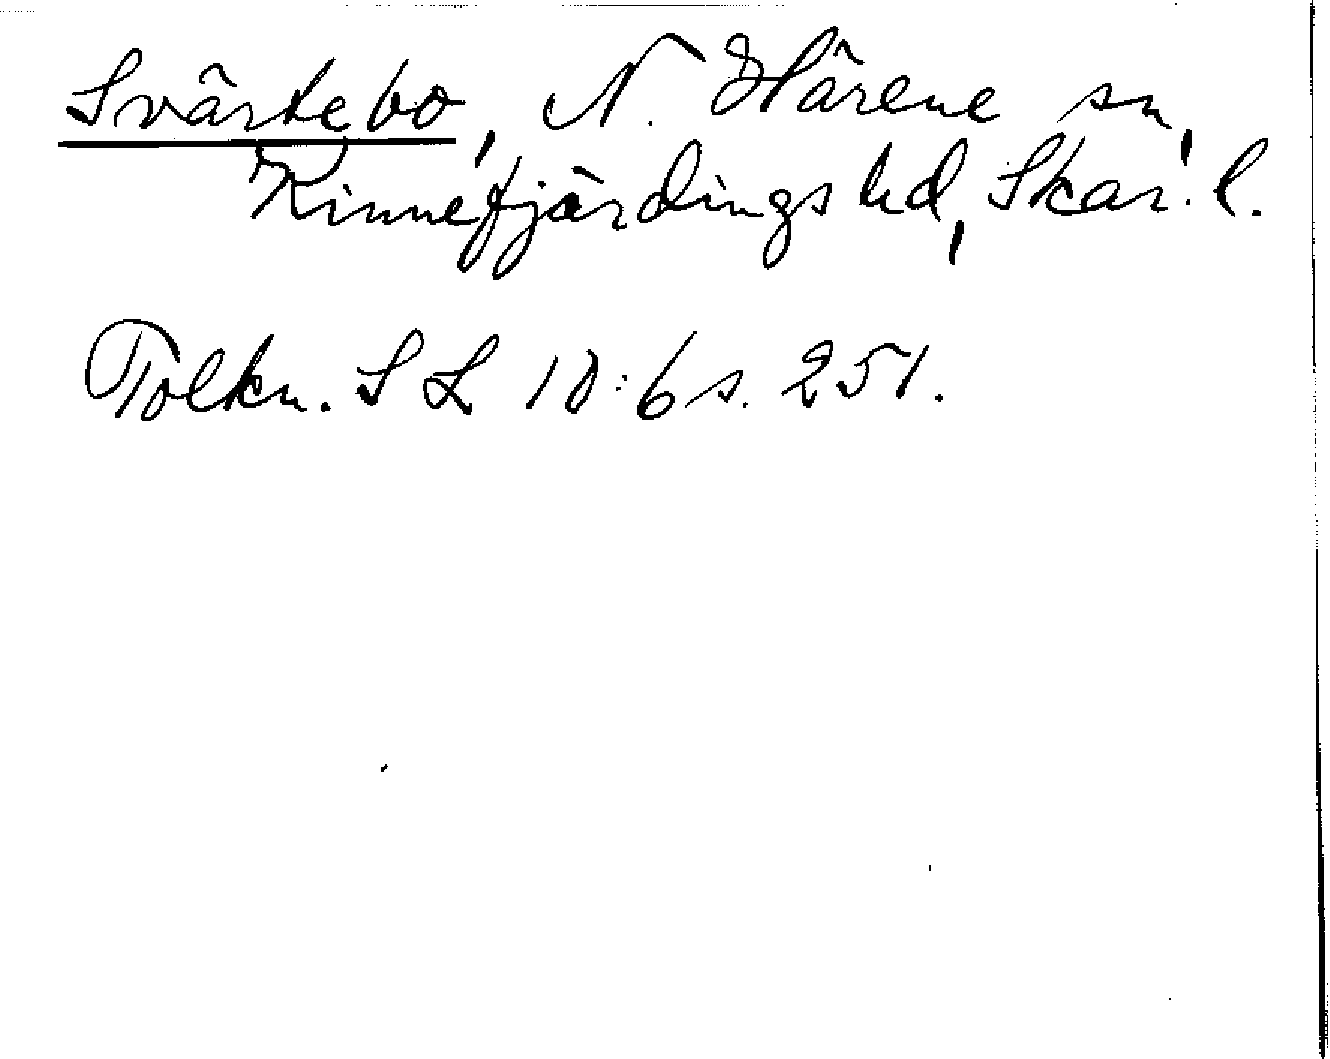 Svärtebo, N. Härene sn,
Kinnefjärdings hd, Skar. l.
Tolkn. SL 10:6 s. 251.